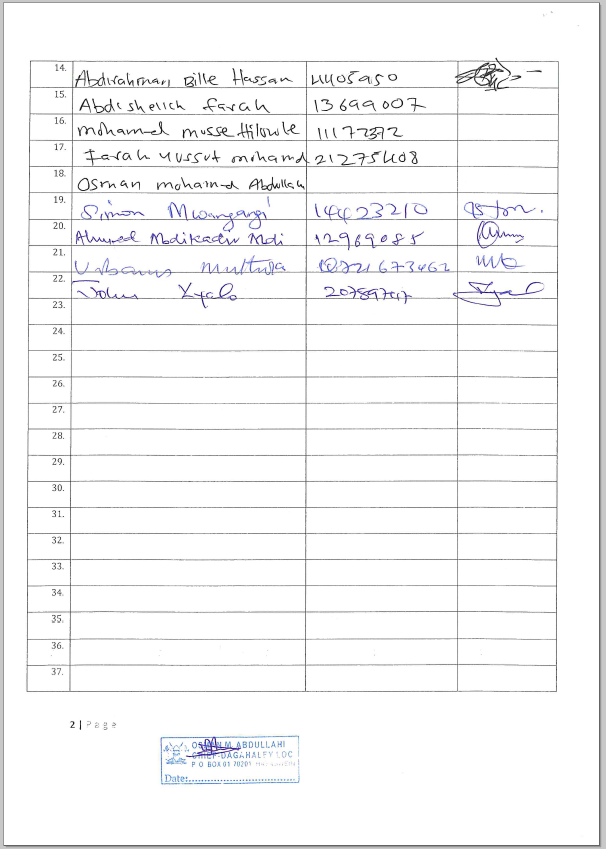 14. Abdirahman Bille Hassan 4405950
15. Abdi sheikh farah 13699007
16. mohamed musse Hilowle 11177372
17. Farah Yussuf mohamd 21275408
18. Osman mohamed Abdullah
19. Simon Mwangangi 14423210
20. Ahmed Abdikadir Abdi 12969085
21. Urbanus
22. John Kyalo
23.
24.
25.
26.
27.
28.
29.
30.
31.
32.
33.
34.
35.
36.
37.
2 | Page
OSMAN M. ABDULLAHI
CHIEF-DAGAHALEY LOC
P O BOX 01 70201
Date: